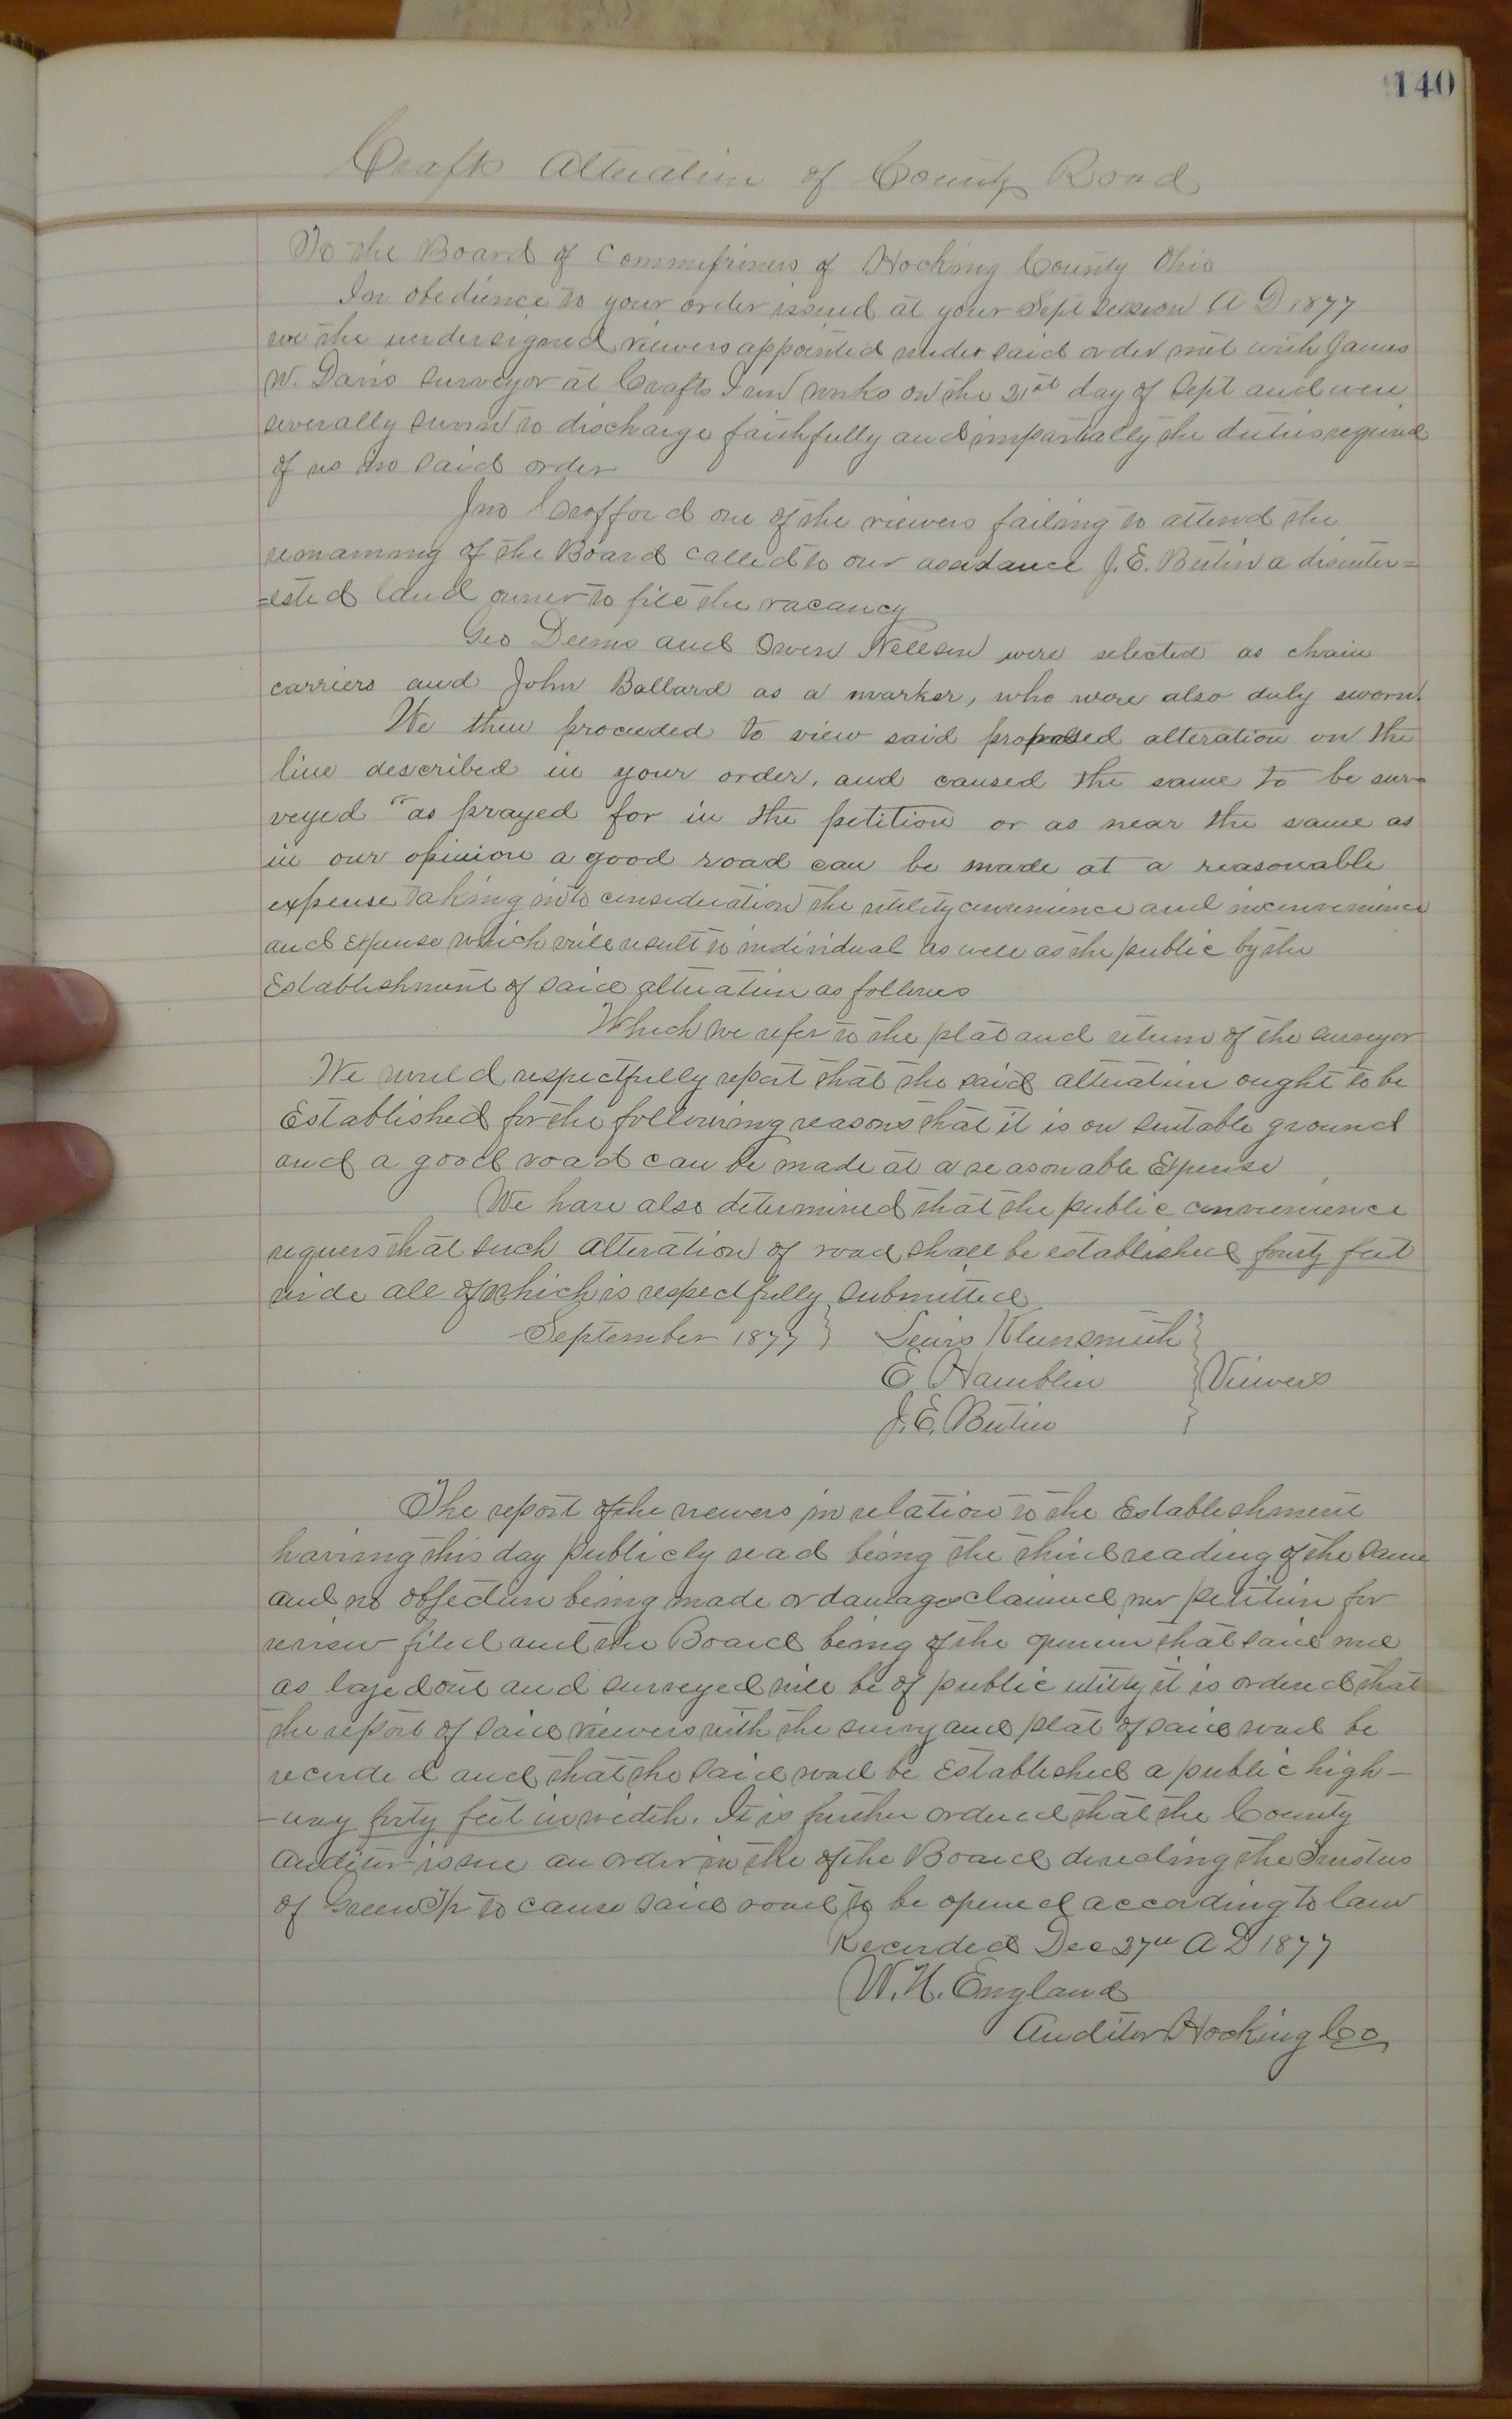 140
Crafts Alteration of County Road
To the Board of Commissioners of Hocking County Ohio
In obedience to your order issued at your Sept Session A D 1877
we the undersigned viewers appointed under said order met with James
W. Davis Surveyor at Crafts Iron works on the 21st day of Sept and were
severally sworn to discharge faithfully and impartially the duties required
of us in said order
Jno Crofford one of the viewers failing to attend the
remaining of the Board called to our assistance J. E. Butin a disinter=
=ested land owner to fill the vacancy
Geo Deems and Owen Nelson were selected as chain
carriers and John Ballard as a marker, who were also duly sworn.
We then proceeded to view said proposed alteration on the
line described in your order, and caused the same to be sur=
veyed "as prayed for in the petition or as near the same as
in our opinion a good road can be made at a reasonable
expense taking into consideration the utility convenience and inconvenience
and expense which will result to individual as well as the public by the
Establishment of said alteration as follows
Which we refer to the plat and return of the surveyor
We would respectfully report that the said alteration ought to be
Established for the following reasons that it is on suitable ground
and a good road can be made at a reasonable Expense
We have also determined that the public convenience
requers that such alteration of road shall be established fourty feet
wide all of which is respectfully submitted
September 1877 } Lewis Klunsmith }
E. Hamblin } Viewers
J. E. Butin }
The report of the viewers in relation to the Establishment
having this day publicly read being the third reading of the same
and no objection being made or damages claimed nor petition for
review filed and the Board being of the opinion that said road
as layed out and surveyed will be of public utility it is ordered that
the report of said viewers with the survey and plat of said road be
recorded and that the said road be Established a public high-
-way forty feet in width. It is further ordered that the County
Auditor issue an order in the of the Board directing the Trustees
of Green Tp to cause said road to be opened according to law
Recorded Dec 27th A D 1877
W. H. England
Auditor Hocking Co